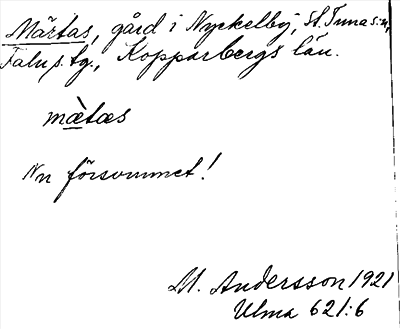 Märtas, gård i Nyckelby, St. Tuna s:n,
Falu s. tg., Kopparbergs län.
mæ̀tæs
Nn försvunnet!
M. Andersson 1921
Ulma 621:6